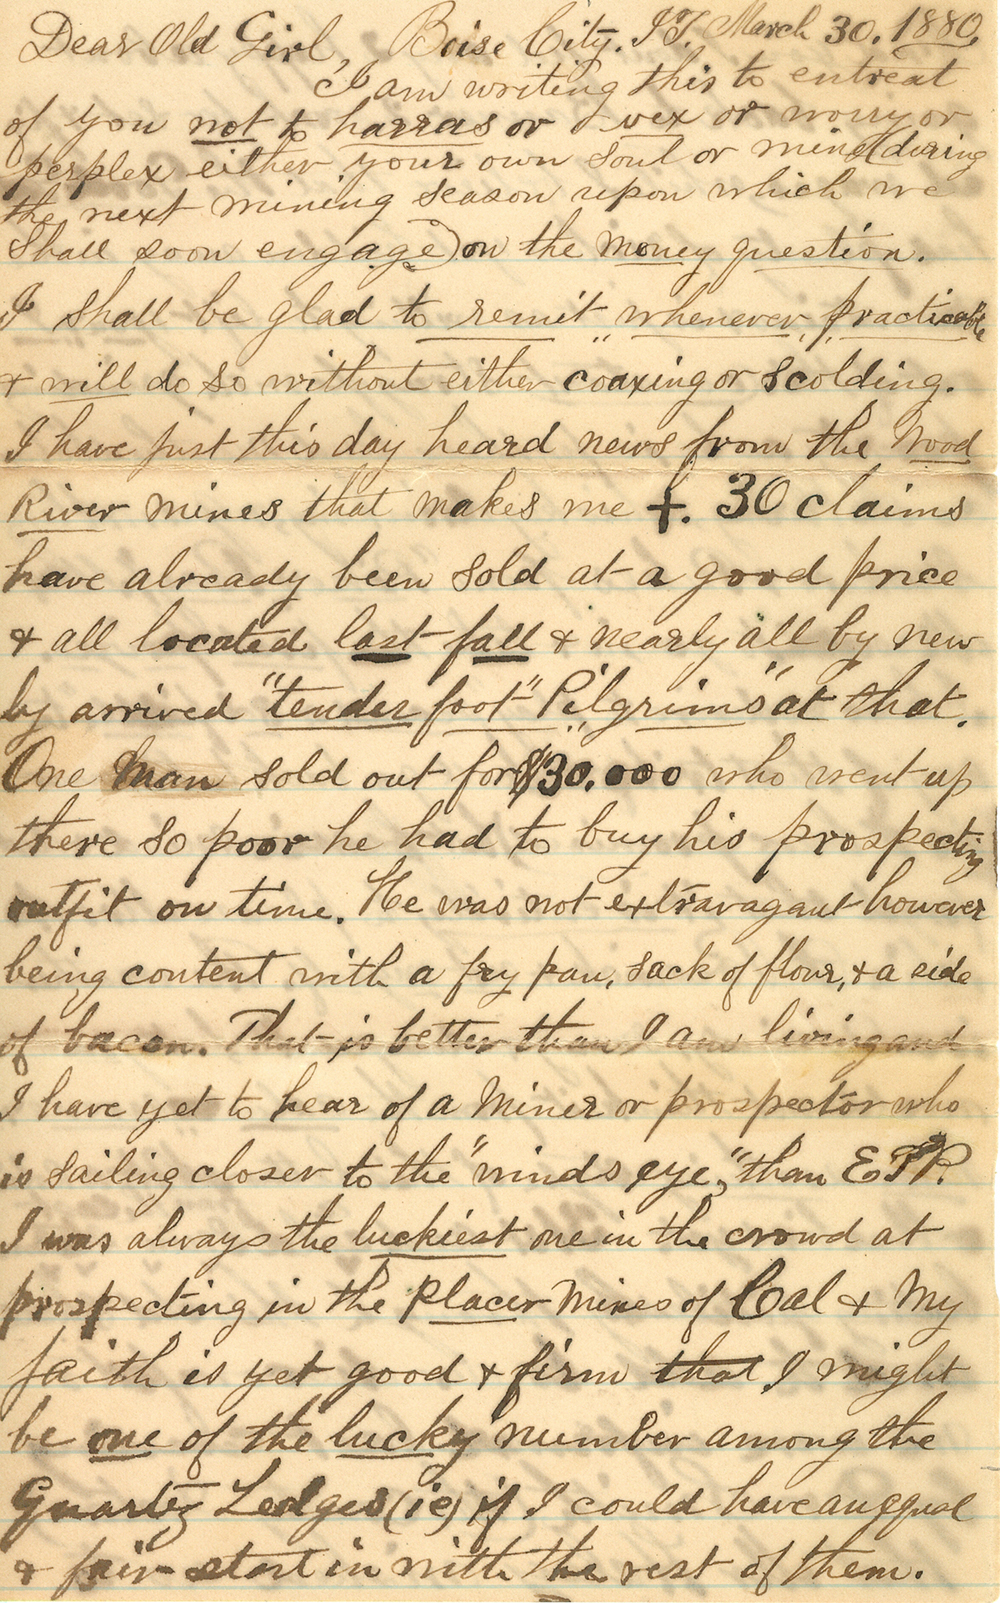 Dear Old Girl, Boise City. I.T. March 30. 1880.
I am writing this to entreat
of you not to harras or vex or worry or
perplex either your own soul or mind (during
the next mining season upon which we
Shall soon engage) on the money question.
I shall be glad to remit "whenever, practicable"
& will do so without either coaxing or scolding.
I have just this day heard news from the Wood
River mines that makes me +. 30 claims
have already been sold at a good price
& all located last fall & nearly all by new
ly arrived "tender foot" "Pilgrims" at that.
One man sold out for $30.000 who went up
there so poor he had to buy his prospecting
outfit on time. He was not extravagant however
being content with a fry pan, sack of flour, & a side
of bacon. That is better than I am living and
I have yet to hear of a Miner or prospector who
is sailing closer to the "winds eye," than E.T.P.
I was always the luckiest one in the crowd at
prospecting in the Placer Mines of Cal & My
faith is yet good & firm that I might
be one of the lucky number among the
Quartz Ledges (ie) if I could have an equal
& fair start in with the rest of them.